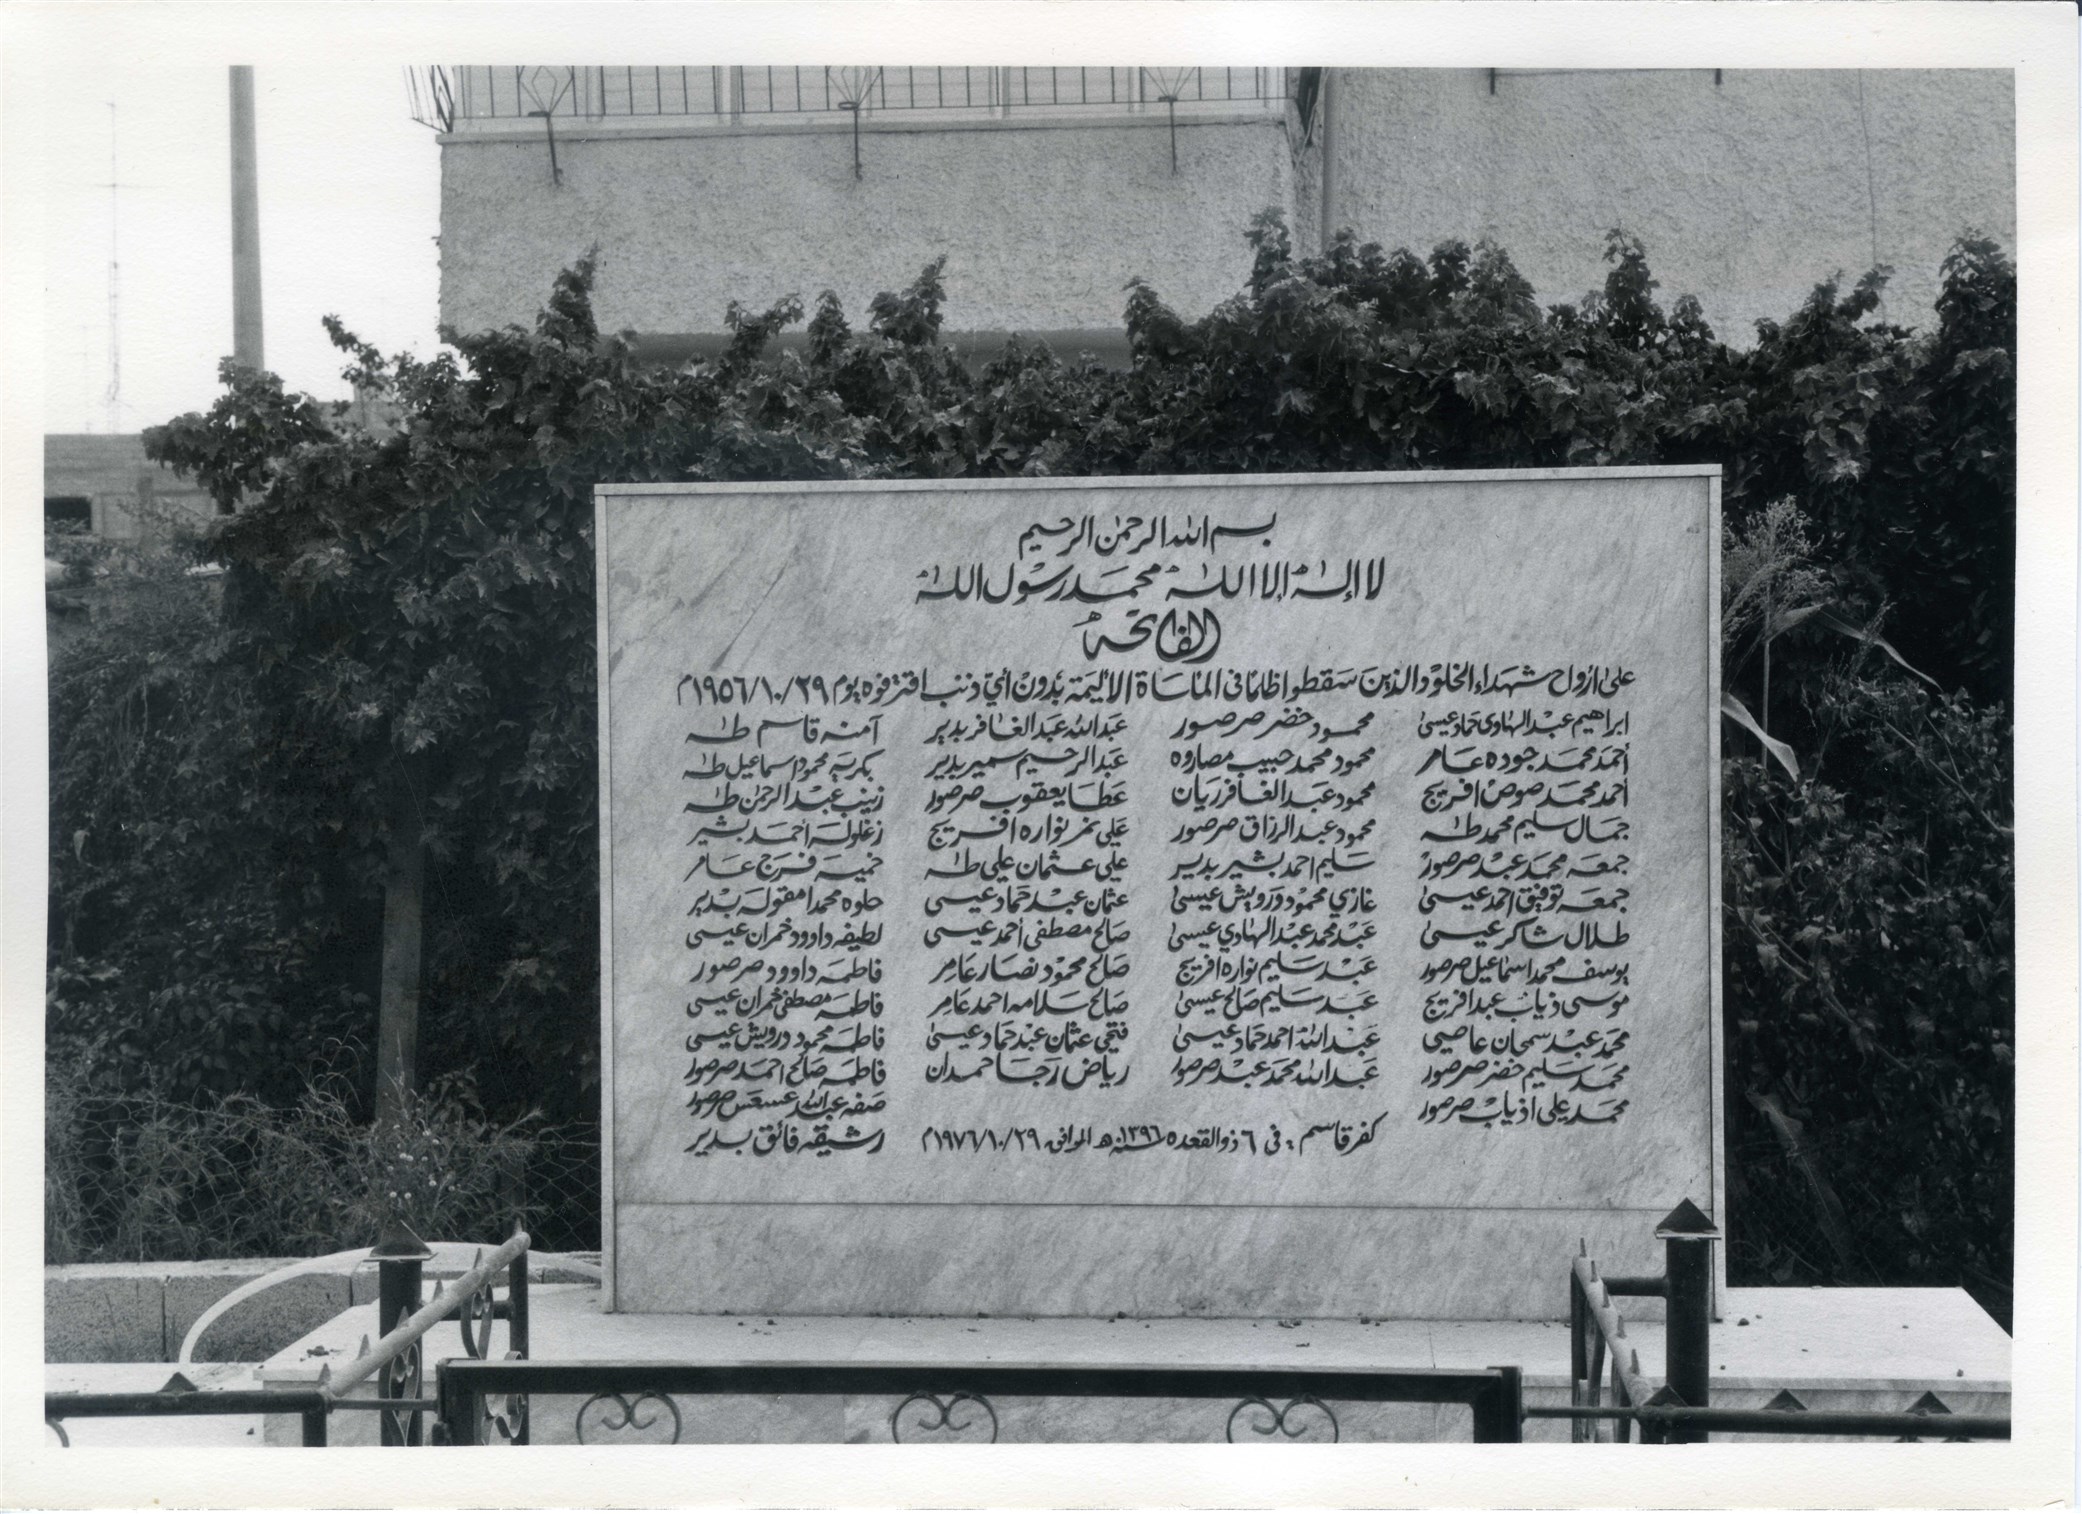 بسم الله الرحمن الرحيم
لا إله إلا الله محمد رسول الله
الفاتحه
على ارواح شهداء الخلود والذين سقطوا ظلما في المأساة الأليمة بدون أي ذنب اقترفوه يوم ١٩٥٦/١٠/٢٩م
ابراهيم عبد الهادي حماد عيسى
أحمد محمد جوده عامر
أحمد محمد صوص افريج
جمال سليم محمد طه
جمعه محمد عبد صرصور
جمعه توفيق احمد عيسى
طلال شاكر عيسى
يوسف محمد اسماعيل صرصور
موسى ذياب عبد افريج
محمد عبد سمحان عاصي
محمد سليم خضر صرصور
محمد علي اذياب صرصور
محمود خضر صرصور
محمود محمد حبيب مصاروه
محمود عبد الغافر ريان
محمود عبد الرزاق صرصور
سليم احمد بشير بدير
غازي محمود درويش عيسى
عبد محمد عبد الهادي عيسى
عبد سليم نواره افريج
عبد سليم صالح عيسى
عبد الله احمد حماد عيسى
عبد الله محمد عبد صرصور
عبد الله عبد الغافر بدير
عبد الرحيم سمير بدير
عطا يعقوب صرصور
علي نمر نواره افريج
علي عثمان علي طه
عثمان عبد حماد عيسى
صالح مصطفى احمد عيسى
صالح محمود نصار عامر
صالح سلامه احمد عامر
فتحي عثمان عبد حماد عيسى
رياض رجا حمدان
آمنه قاسم طه
بكريه محمود اسماعيل طه
زينب عبد الرحمن طه
زغلولة أحمد بشير
خميسة فرج عامر
حلوه محمد بدير
لطيفه داوود عيسى
فاطمة داوود صرصور
فاطمة مصطفى عيسى
فاطمة محمود درويش عيسى
فاطمة صالح احمد صرصور
صفه عبدالله صرصور
رشيقه فائق بدير
كفر قاسم : في ٦ ذو القعده سنة ١٣٩٦هـ الموافق ١٩٧٦/١٠/٢٩م